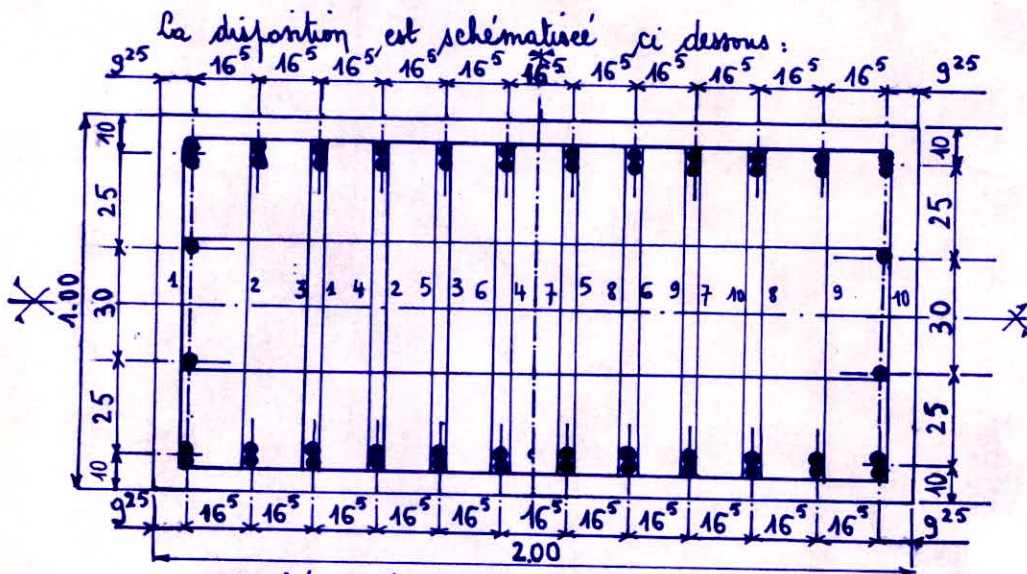 La disposition est schématisée ci dessous :
9²⁵ 16⁵ 16⁵ 16⁵ 16⁵ 16⁵ 16⁵ 16⁵ 16⁵ 16⁵ 16⁵ 16⁵ 9²⁵
10 10
25 25
1 2 3 1 4 2 5 3 6 4 7 5 8 6 9 7 10 8 9 10
1.00 30 30
25 25
10 10
9²⁵ 16⁵ 16⁵ 16⁵ 16⁵ 16⁵ 16⁵ 16⁵ 16⁵ 16⁵ 16⁵ 16⁵ 9²⁵
2.00